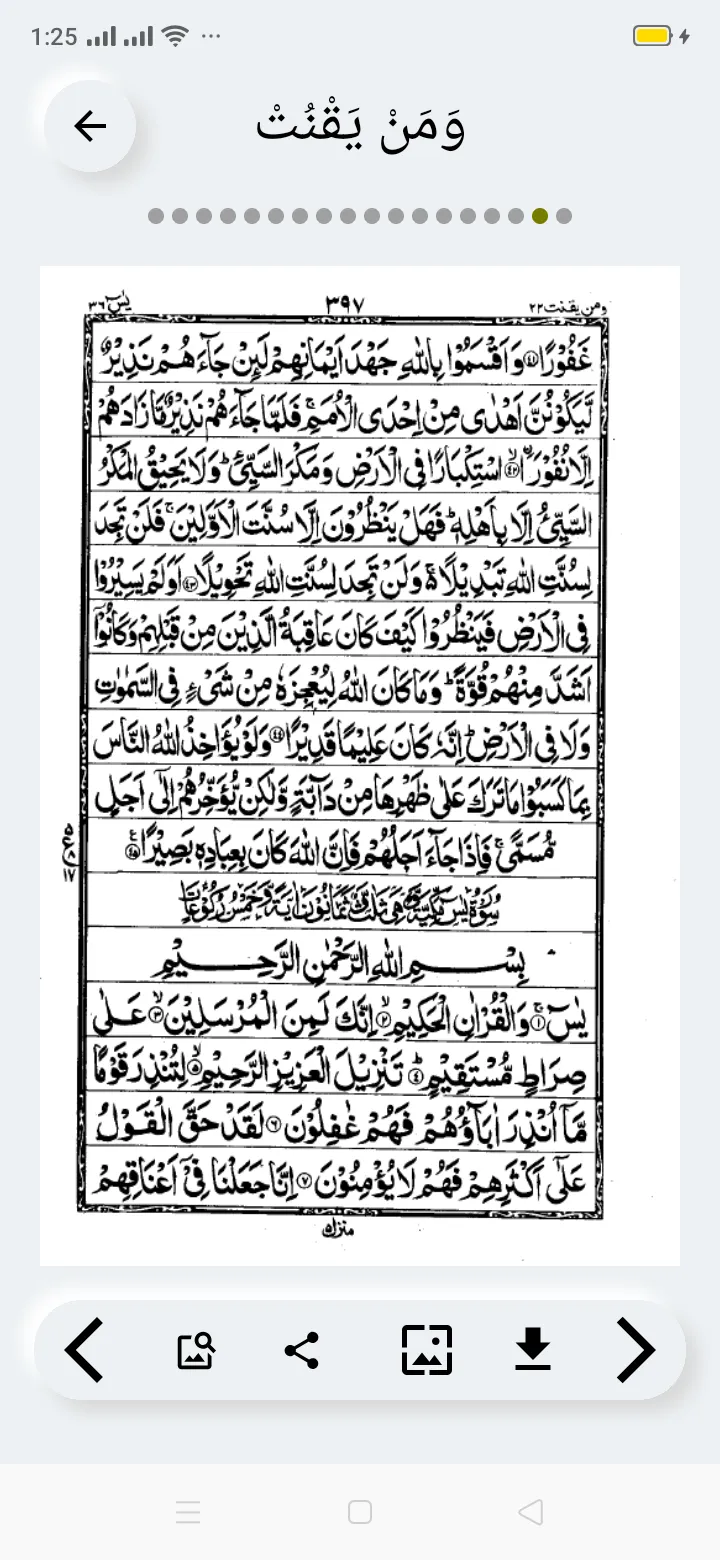 1:25
وَمَنْ يَقْنُتْ
يٰسٓ ٣٦ ٣٩٧ ومن يقنت ٢٢
غَفُوْرًا ﴿٤١﴾ وَاَقْسَمُوْا بِاللّٰهِ جَهْدَ اَيْمَانِهِمْ لَئِنْ جَآءَهُمْ نَذِيْرٌ
لَّيَكُوْنُنَّ اَهْدٰى مِنْ اِحْدَى الْاُمَمِ ۚ فَلَمَّا جَآءَهُمْ نَذِيْرٌ مَّا زَادَهُمْ
اِلَّا نُفُوْرَا ﴿٤٢﴾ۙ اسْتِكْبَارًا فِى الْاَرْضِ وَمَكْرَ السَّيِّئِ ؕ وَلَا يَحِيْقُ الْمَكْرُ
السَّيِّئُ اِلَّا بِاَهْلِهٖ ؕ فَهَلْ يَنْظُرُوْنَ اِلَّا سُنَّتَ الْاَوَّلِيْنَ ۚ فَلَنْ تَجِدَ
لِسُنَّتِ اللّٰهِ تَبْدِيْلًا ۚ۬ وَلَنْ تَجِدَ لِسُنَّتِ اللّٰهِ تَحْوِيْلًا ﴿٤٣﴾ اَوَلَمْ يَسِيْرُوْا
فِى الْاَرْضِ فَيَنْظُرُوْا كَيْفَ كَانَ عَاقِبَةُ الَّذِيْنَ مِنْ قَبْلِهِمْ وَكَانُوْٓا
اَشَدَّ مِنْهُمْ قُوَّةً ؕ وَمَا كَانَ اللّٰهُ لِيُعْجِزَهٗ مِنْ شَىْءٍ فِى السَّمٰوٰتِ
وَلَا فِى الْاَرْضِ ؕ اِنَّهٗ كَانَ عَلِيْمًا قَدِيْرًا ﴿٤٤﴾ وَلَوْ يُؤَاخِذُ اللّٰهُ النَّاسَ
بِمَا كَسَبُوْا مَا تَرَكَ عَلٰى ظَهْرِهَا مِنْ دَآبَّةٍ وَّلٰكِنْ يُّؤَخِّرُهُمْ اِلٰٓى اَجَلٍ
مُّسَمًّى ۚ فَاِذَا جَآءَ اَجَلُهُمْ فَاِنَّ اللّٰهَ كَانَ بِعِبَادِهٖ بَصِيْرًا ﴿٤٥﴾
سُوْرَةُ يٰسٓ مَكِّيَّةٌ وَّهِىَ ثَلٰثٌ وَّثَمَانُوْنَ اٰيَةً وَّخَمْسُ رُكُوْعَاتٍ
بِسْمِ اللّٰهِ الرَّحْمٰنِ الرَّحِيْمِ
يٰسٓ ﴿١﴾ۚ وَالْقُرْاٰنِ الْحَكِيْمِ ﴿٢﴾ۙ اِنَّكَ لَمِنَ الْمُرْسَلِيْنَ ﴿٣﴾ۙ عَلٰى
صِرَاطٍ مُّسْتَقِيْمٍ ﴿٤﴾ؕ تَنْزِيْلَ الْعَزِيْزِ الرَّحِيْمِ ﴿٥﴾ۙ لِتُنْذِرَ قَوْمًا
مَّآ اُنْذِرَ اٰبَآؤُهُمْ فَهُمْ غٰفِلُوْنَ ﴿٦﴾ لَقَدْ حَقَّ الْقَوْلُ
عَلٰٓى اَكْثَرِهِمْ فَهُمْ لَا يُؤْمِنُوْنَ ﴿٧﴾ اِنَّا جَعَلْنَا فِىْٓ اَعْنَاقِهِمْ